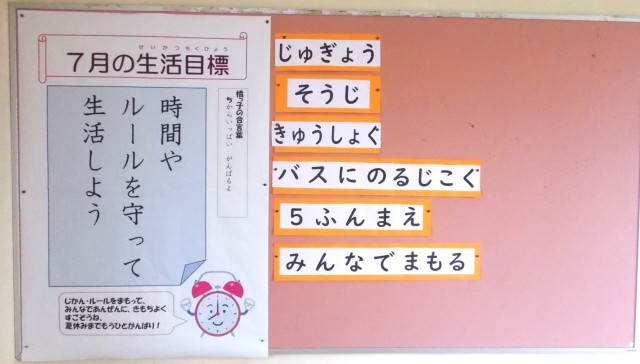 せいかつもくひょう
7月の生活目標
時間や
ルールを守って
生活しよう
ちからいっぱい がんばるよ
じかん・ルールをまもって、
みんなであんぜんに、きもちよく
すごそうね。
夏休みまでもうひとがんばり！
じゅぎょう
そうじ
きゅうしょく
バスにのるじこく
5ふんまえ
みんなでまもる